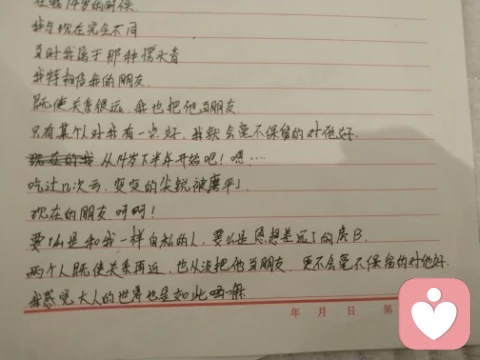 在我14岁的时候
我与现在完全不同
当时我属于那种愣头青
我特相信我的朋友
既使关系很远，我也把他当朋友
只有某个人对我有一点好，我就会毫不保留的对他好
现在的我 从14岁下半年开始吧！嗯……
吃过n次亏，突突的尖锐被磨平了
现在的朋友 呵呵！
要么是和我一样自私的人，要么是思想差远了的傻B.
两个人既使关系再近，也从没把他当朋友，更不会毫不保留的对他好.
我感觉大人的世界也是如此
年 月 日 第